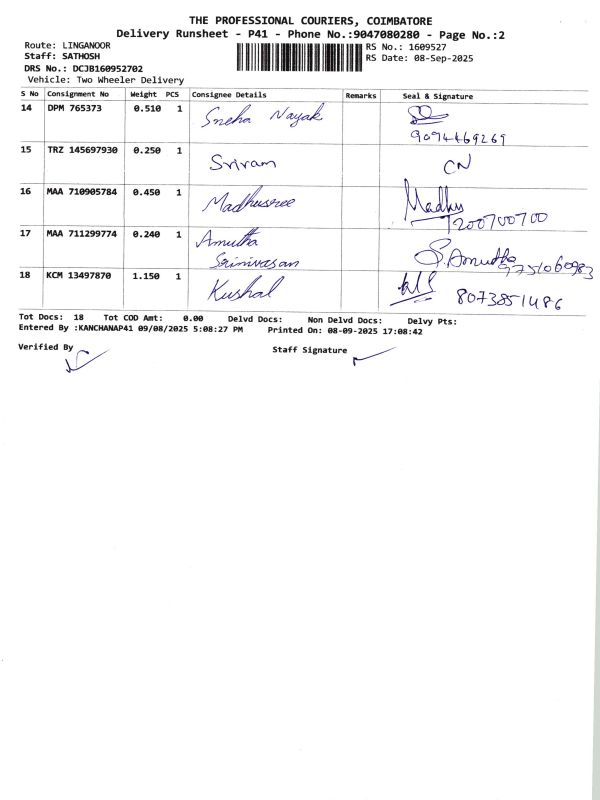 THE PROFESSIONAL COURIERS, COIMBATORE
Delivery Runsheet - P41 - Phone No.:9047080280 - Page No.:2
Route: LINGANOOR
RS No.: 1609527
Staff: SATHOSH
RS Date: 08-Sep-2025
DRS No.: DCJB160952702
Vehicle: Two Wheeler Delivery
S No Consignment No Weight PCS Consignee Details Remarks Seal & Signature
14 DPM 765373 0.510 1 Sneha Nayak
9094469269
15 TRZ 145697930 0.250 1 Sriram CN
16 MAA 710905784 0.450 1 Madhusree Madhu
7200700700
17 MAA 711299774 0.240 1 Amutha Srinivasan S.Amudha
9751060983
18 KCM 13497870 1.150 1 Kushal
8073851486
Tot Docs: 18 Tot COD Amt: 0.00 Delvd Docs: Non Delvd Docs: Delvy Pts:
Entered By :KANCHANAP41 09/08/2025 5:08:27 PM Printed On: 08-09-2025 17:08:42
Verified By Staff Signature